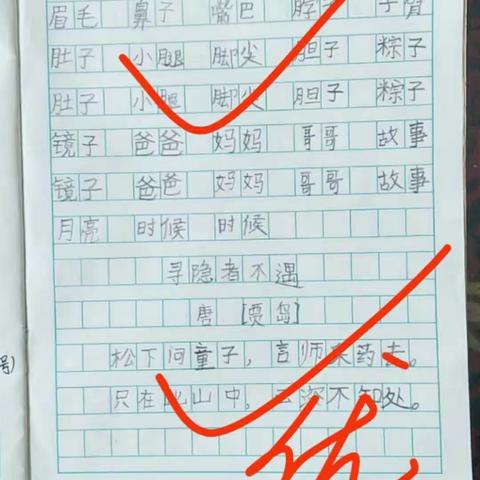 眉毛 鼻子 嘴巴 脖子 手臂
肚子 小腿 脚尖 胆子 粽子
肚子 小腿 脚尖 胆子 粽子
镜子 爸爸 妈妈 哥哥 故事
镜子 爸爸 妈妈 哥哥 故事
月亮 时候 时候
寻隐者不遇
唐 [贾岛]
松下问童子，言师采药去。
只在此山中，云深不知处。
优